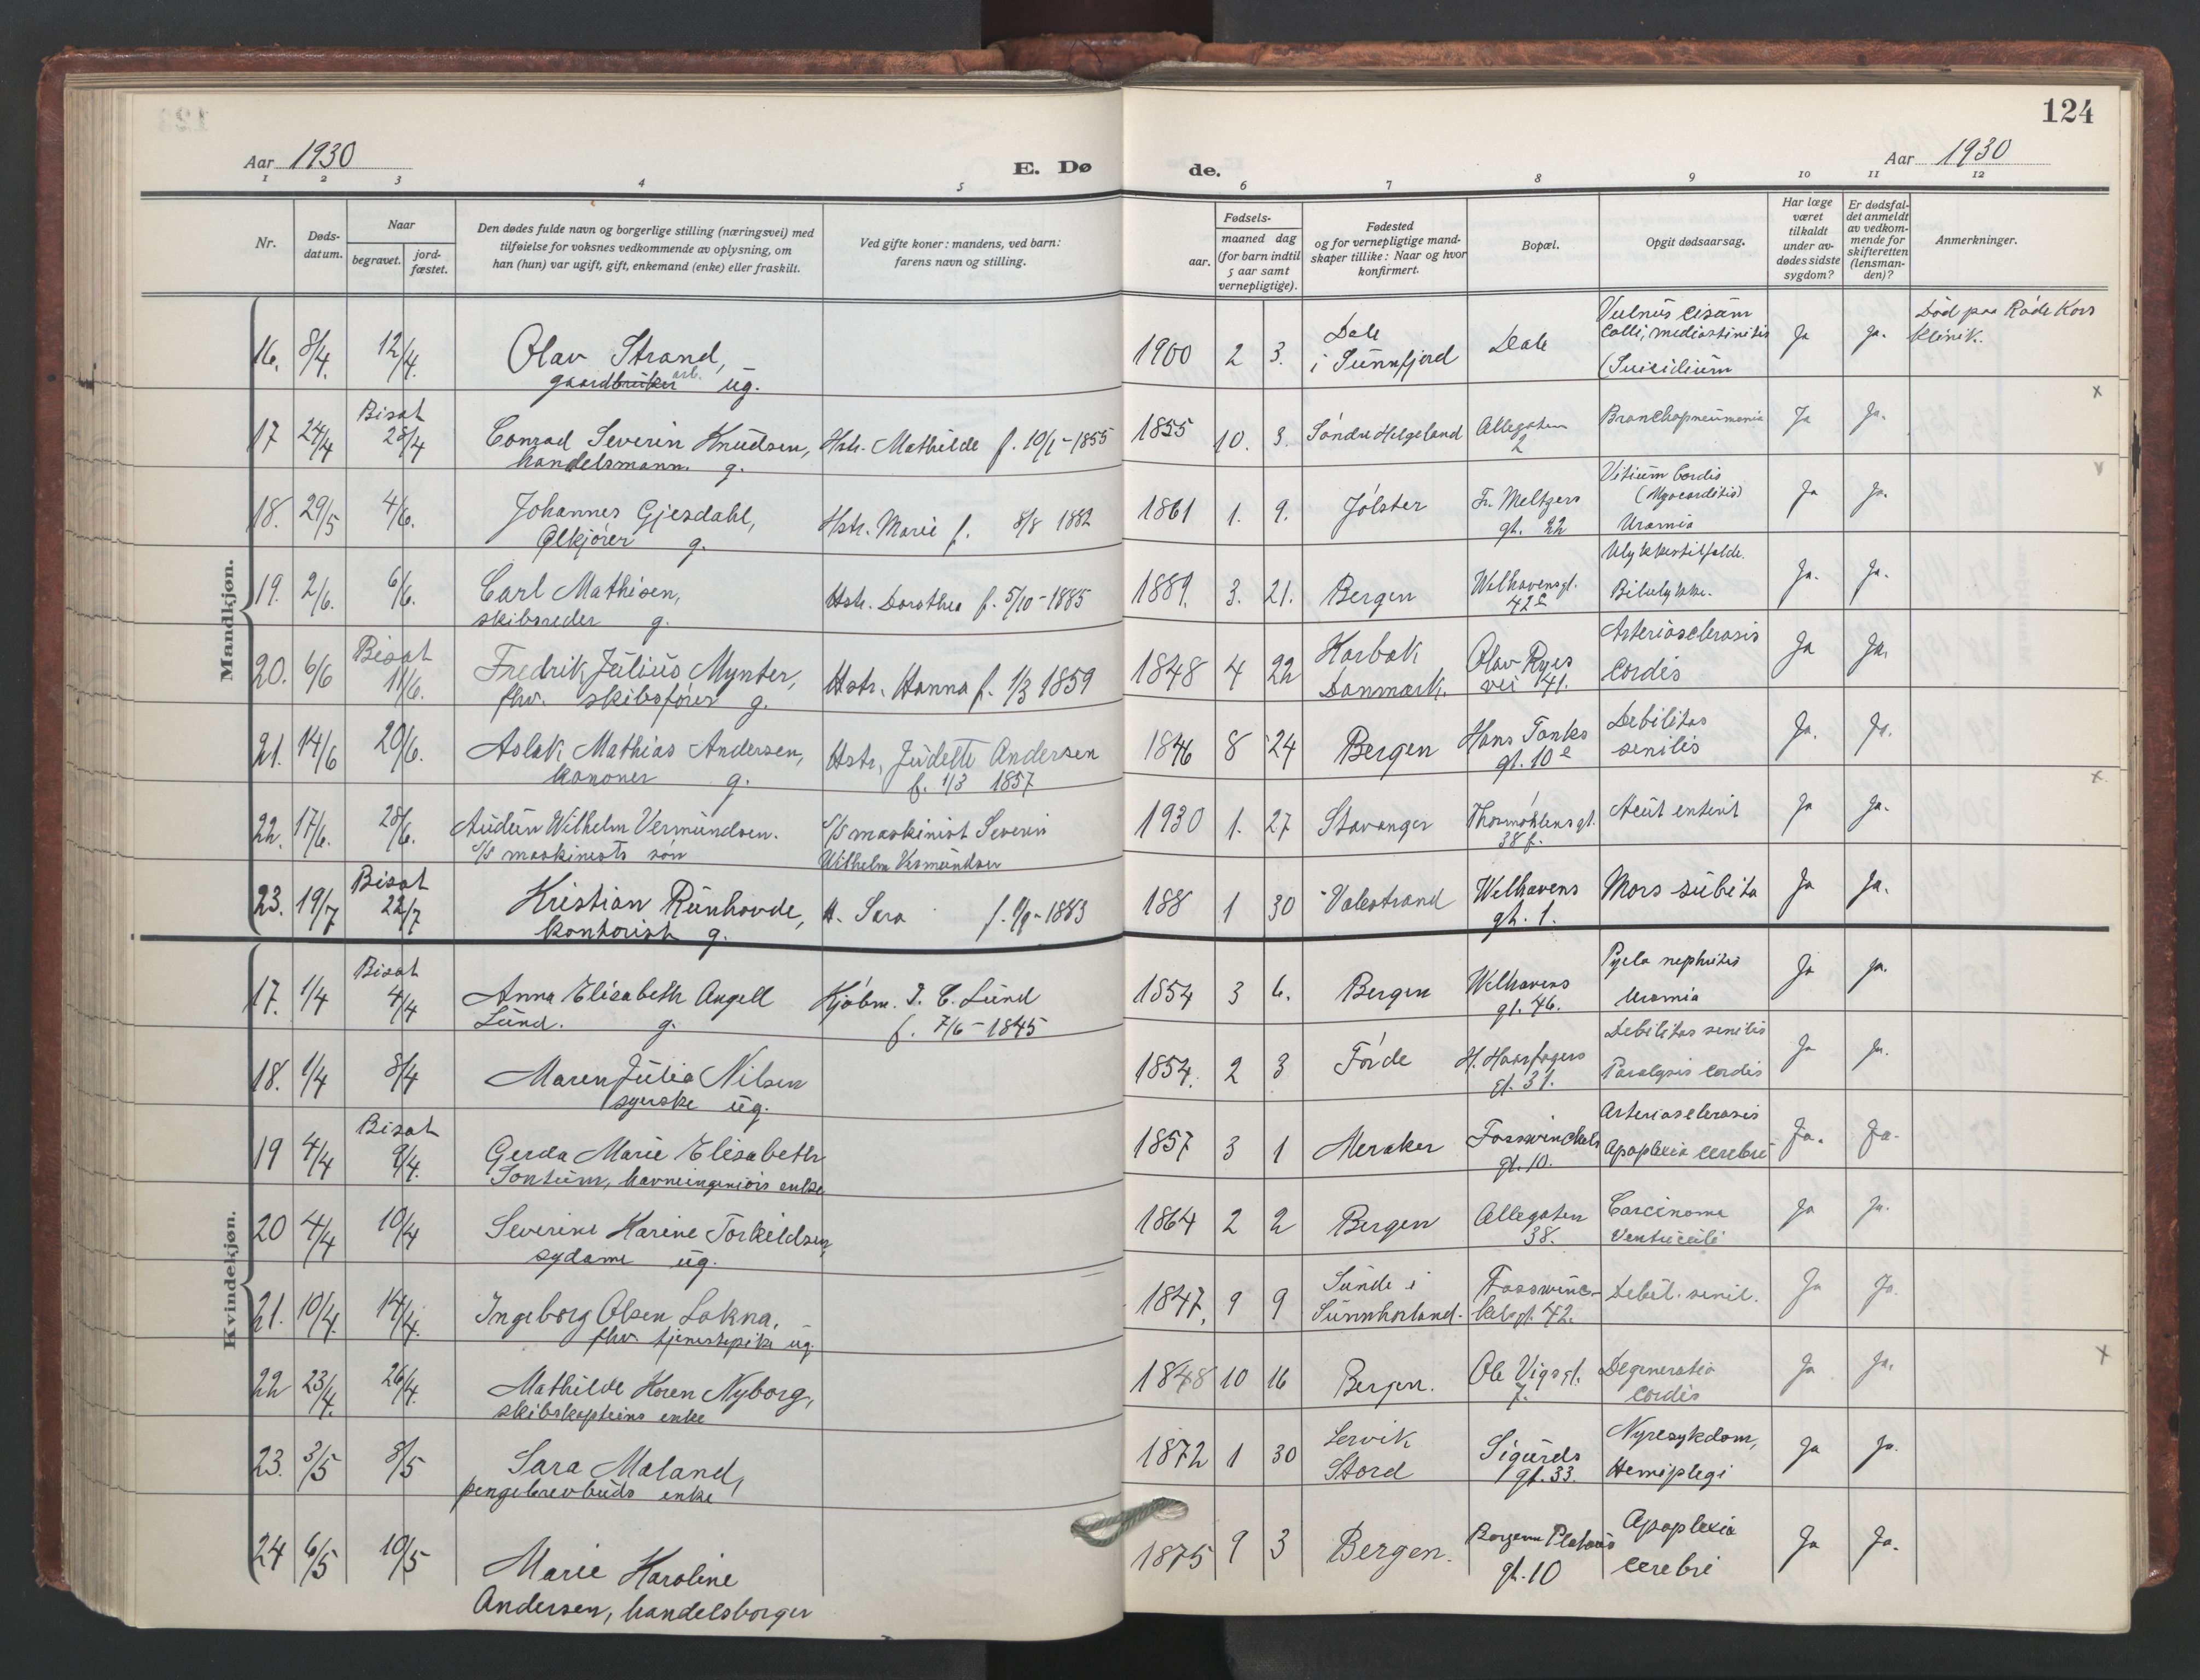 124
Aar 1930
E. Dø
de.
Aar 1930
1 2 3 4 5 6 7 8 9 10 11 12
Nr.
Døds-
datum.
Naar
begravet.
jord-
fæstet.
Den dødes fulde navn og borgerlige stilling (næringsvei) med
tilføielse for voksnes vedkommende av oplysning, om
han (hun) var ugift, gift, enkemand (enke) eller fraskilt.
Ved gifte koner: mandens, ved barn:
farens navn og stilling.
Fødsels-
aar.
maaned dag
(for barn indtil
5 aar samt
vernepligtige).
Fødested
og for vernepligtige mand-
skaper tillike: Naar og hvor
konfirmert.
Bopæl.
Opgit dødsaarsag.
Har læge
været
tilkaldt
under av-
dødes sidste
sygdom?
Er dødsfal-
det anmeldt
av vedkom-
mende for
skifteretten
(lensman-
den)?
Anmerkninger.
Mandkjøn.
16. 8/4. 12/4. Olav Strand,
gaardbruker arb. ug.
1900 2 3. Dale
i Sunnfjord
Dale
Vulnus cisum
Colli, mediastinitis
(Suicidium
Ja ja. Død paa Røde Kors
Klinik.
x
17 24/4 Bisat
28/4 Conrad Severin Knudsen,
handelsmann. g.
Hstr. Mathilde f. 10/1-1855
1855 10. 3. Søndre Helgeland Allegaten
2
Bronchopneumonia Ja Ja.
18. 29/5 4/6. Johannes Gjesdahl,
Ølkjører g.
Hstr. Marie f. 8/8 1882
1861 1. 9. Jølster Fr. Meltzers
gt. 22
Vitium Cordis
(Myocarditis)
Uræmia
Ja ja.
19. 2/6. 6/6. Carl Mathisen,
skibsreder g.
Hstr. Dorothea f. 5/10-1885
1889. 3. 21. Bergen Welhavensgt.
42c
Ulykkestilfælde.
Bilulykke.
Ja. Ja.
20. 6/6 Bisat
11/6. Fredrik Julius Mynter,
fhv. skibsfører g.
Hstr. Hanna f. 1/3 1859
1848 4 22 Korbak
Danmark.
Olav Ryes
vei 41.
Arteriosclerosis
Cordis
Ja Ja.
21. 14/6 20/6. Aslak Mathias Andersen,
kanoner g.
Hstr. Judette Andersen
f. 1/3 1857
1846 8 24 Bergen Hans Tanks
gt. 10e
Debilitas
senilis
Ja. Ja.
x
22. 17/6. 28/6. Audun Wilhelm Vermundsen.
s/s maskinists søn
s/s maskinist Severin
Wilhelm Vermundsen
1930 1. 27 Stavanger Thormøhlensgt.
38f.
Acut enterit Ja ja.
23. 19/7 Bisat
22/7 Kristian Runhovde,
kontorist g.
H. Sara f. 1/9-1883
188 1 30 Valestrand Welhavens
gt. 1.
Mors subita Ja Ja.
Kvindekjøn.
17. 1/4 Bisat
4/4 Anna Elisabeth Angell
Lund. g.
Kjøbm. J. C. Lund
f. 7/6-1845
1854 3 6. Bergen Welhavens
gt. 46.
Pyelo nephritis
Uræmia
Ja ja.
18. 1/4 8/4 Maren Julia Nilsen
syerske ug.
1854. 2 3 Førde H. Haarfagers
gt. 31.
Debilitas senilis
Paralysis cordis
Ja ja.
19 4/4 Bisat
9/4. Gerda Marie Elisabeth
Sontum, havneingeniørs enke
1857 3 1 Meraker Fosswinckels
gt. 10.
Arteriosclerosis
Apoplexia cerebri
Ja. Ja.
20 4/4 10/4 Severine Karine Torkildsen,
sydame ug.
1864 2 2 Bergen Allegaten
38.
Carcinoma
Ventriculi
Ja Ja.
21. 10/4. 14/4. Ingeborg Olsen Lokna,
fhv. tjenestepike ug.
1847. 9 9 Sunde i
Sunnhorland.
Fosswinc-
kelsgt. 42.
Debil. senil. Ja Ja.
x
22 23/4. 26/4. Mathilde Horen Nyborg,
skibskapteins enke
1848 10 16 Bergen. Ole Vigsgt.
7.
Degeneratio
Cordis
Ja Ja.
23. 3/5 8/5 Sara Maland,
pengebrevbuds enke
1872 1 30 Lervik
Stord
Sigurds
gt. 33.
Nyresykdom,
Hemiplegi
Ja ja.
24 6/5 10/5 Marie Karoline
Andersen, handelsborger
1875 9 3 Bergen. Platous
gt. 10
Apoplexia
cerebri
Ja Ja.